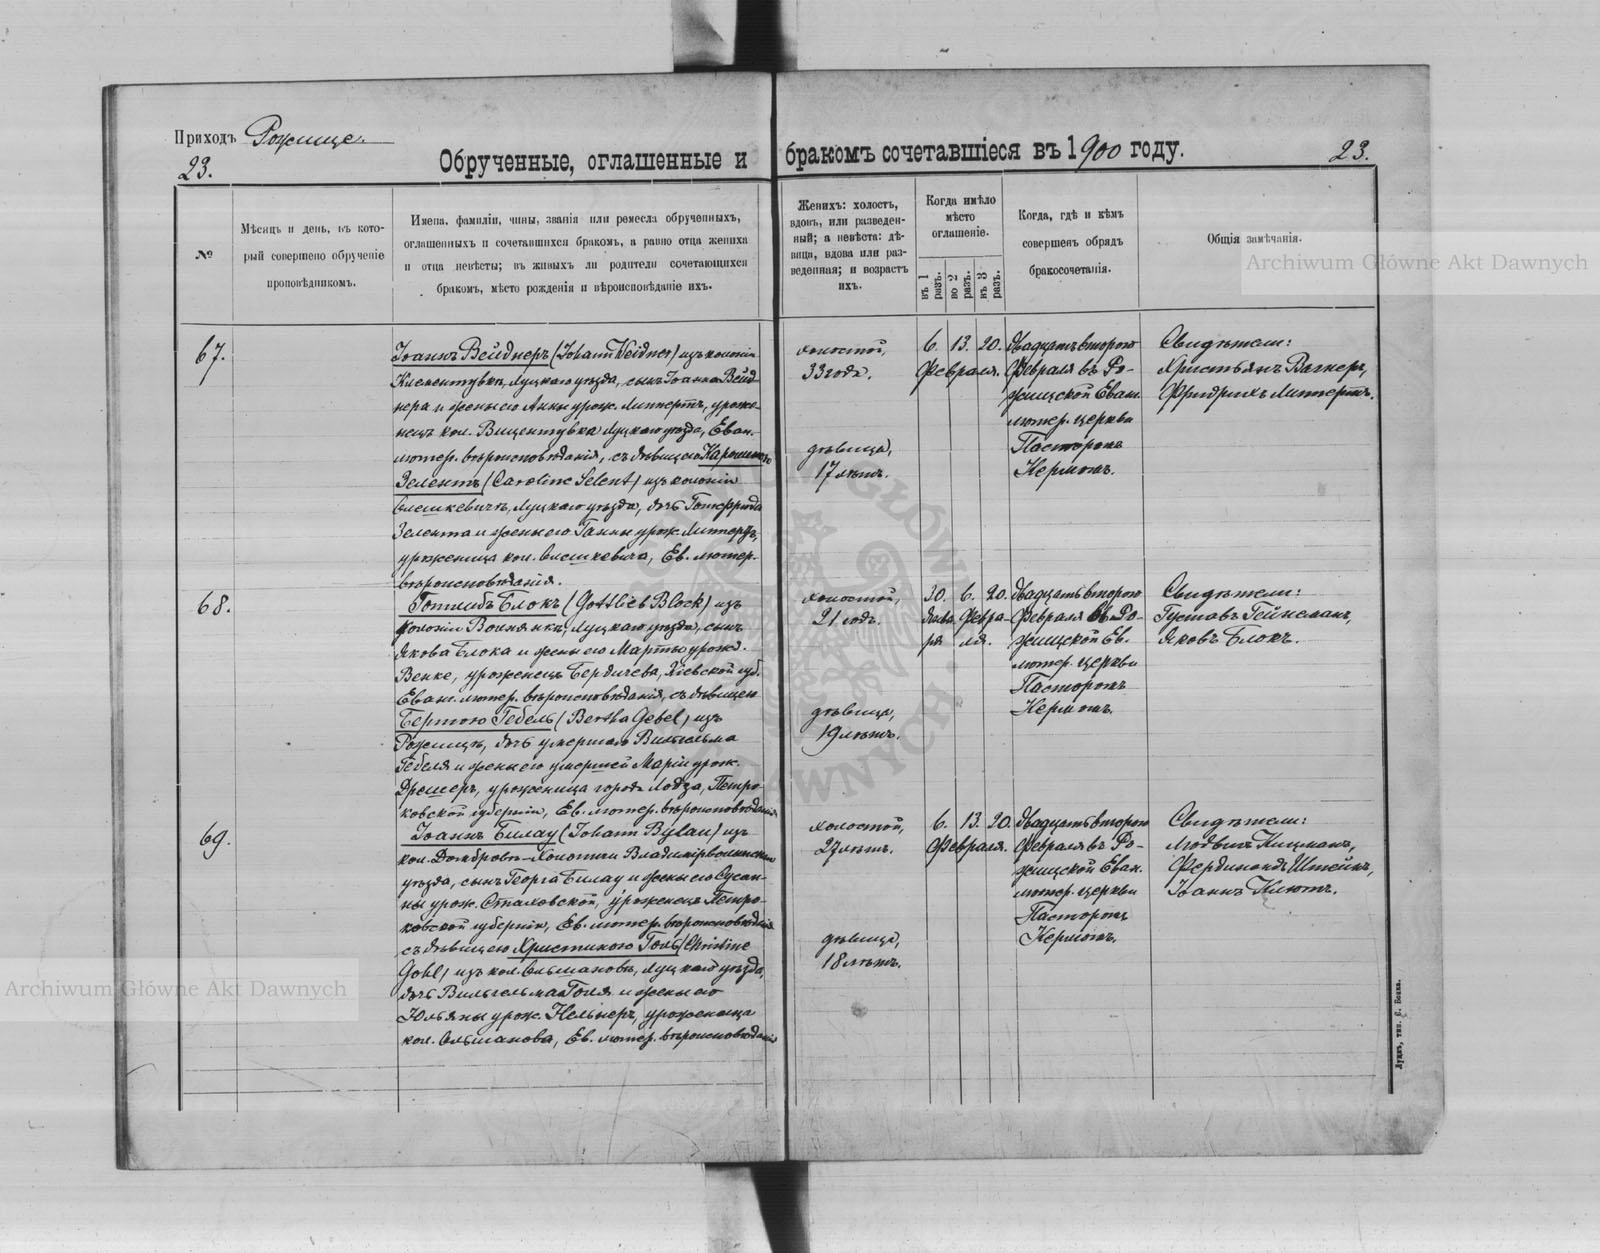 Приходъ Рожище.
23.
Обрученные, оглашенные и бракомъ сочетавшіеся въ 1900 году.
23.
№
Мѣсяцъ и день, въ кото-
рый совершено обрученіе
проповѣдникомъ.
Имена, фамиліи, чины, званія или ремесла обрученныхъ,
оглашенныхъ и сочетавшихся бракомъ, а равно отца жениха
и отца невѣсты; въ живыхъ ли родители сочетающихся
бракомъ, мѣсто рожденія и вѣроисповѣданіе ихъ.
Женихъ: холостъ,
вдовъ, или разведен-
ный; а невѣста: дѣ-
вица, вдова или раз-
веденная; и возрастъ
ихъ.
Когда имѣло
мѣсто
оглашеніе.
въ 1 разъ.
во 2 разъ.
въ 3 разъ.
Когда, гдѣ и кѣмъ
совершенъ обрядъ
бракосочетанія.
Общія замѣчанія.
Archiwum Główne Akt Dawnych
67.
Іоаннъ Вейднеръ (Johann Weidner) изъ колоніи
Климентувка, Луцкаго уѣзда, сынъ Іоанна Вейд-
нера и жены его Анны урож. Липпертъ, уроже-
нецъ кол. Вицентувка Луцкаго уѣзда, Еван.
лютер. вѣроисповѣданія, съ дѣвицею Каролиною
Зелентъ (Caroline Selent) изъ колоніи
Олешкевичъ, Луцкаго уѣзда, дочь Готфрида
Зелента и жены его Ганны урож.
уроженица кол. Олешкевича, Ев. лютер.
вѣроисповѣданія.
холостой,
33 года.
дѣвица,
17 лѣтъ.
6. 13. 20.
Февраля.
Двадцать второго
Февраля въ Ро-
жищской Еван.
лютер. церкви
Пасторомъ
Кермомъ.
Свидѣтели:
Христьянъ Вагнеръ,
Фридрихъ Липпертъ.
68.
Готлибъ Блокъ (Gottlieb Block) изъ
колоніи Волнянка, Луцкаго уѣзда, сынъ
Якова Блока и жены его Марты урожд.
Венке, уроженецъ Бердичева, Кіевской губ.
Еван. лютер. вѣроисповѣданія, съ дѣвицею
Бертою Гебель (Bertha Gebel) изъ
Рожищъ, дочь умершаго Вильгельма
Гебеля и жены его умершей Маріи урож.
Дрешеръ, уроженица города Лодза, Петро-
ковской губерніи, Ев. лютер. вѣроисповѣданія
холостой,
21 годъ.
дѣвица,
19 лѣтъ.
30. 6. 20.
Янва- Февра-
ря ля.
Двадцать второго
Февраля въ Ро-
жищской Ев.
лютер. церкви
Пасторомъ
Кермомъ.
Свидѣтели:
Густавъ Гейнеманъ,
Яковъ Блокъ.
69.
Іоаннъ Билау (Johann Bylau) изъ
кол. Домброва-Холопичи Владимірволынскаго
уѣзда, сынъ Георга Билау и жены его Сусан-
ны урож. Стаховской, уроженецъ Петро-
ковской губерніи, Ев. лютер. вѣроисповѣданія
съ дѣвицею Христиною Голь (Christine
Gohl) изъ кол. Ольшановъ, Луцкаго уѣзда,
дочь Вильгельма Голя и жены его
Юльяны урож. Кельнеръ, уроженица
кол. Ольшанова, Ев. лютер. вѣроисповѣданія
холостой,
27 лѣтъ.
дѣвица,
18 лѣтъ.
6. 13. 20.
Февраля.
Двадцать второго
Февраля въ Ро-
жищской Еван.
лютер. церкви
Пасторомъ
Кермомъ.
Свидѣтели:
Людвигъ Кицманъ,
Фердинандъ Штейнъ,
Іоаннъ Клютъ.
Archiwum Główne Akt Dawnych
Луцкъ, тип. С. Бокка.